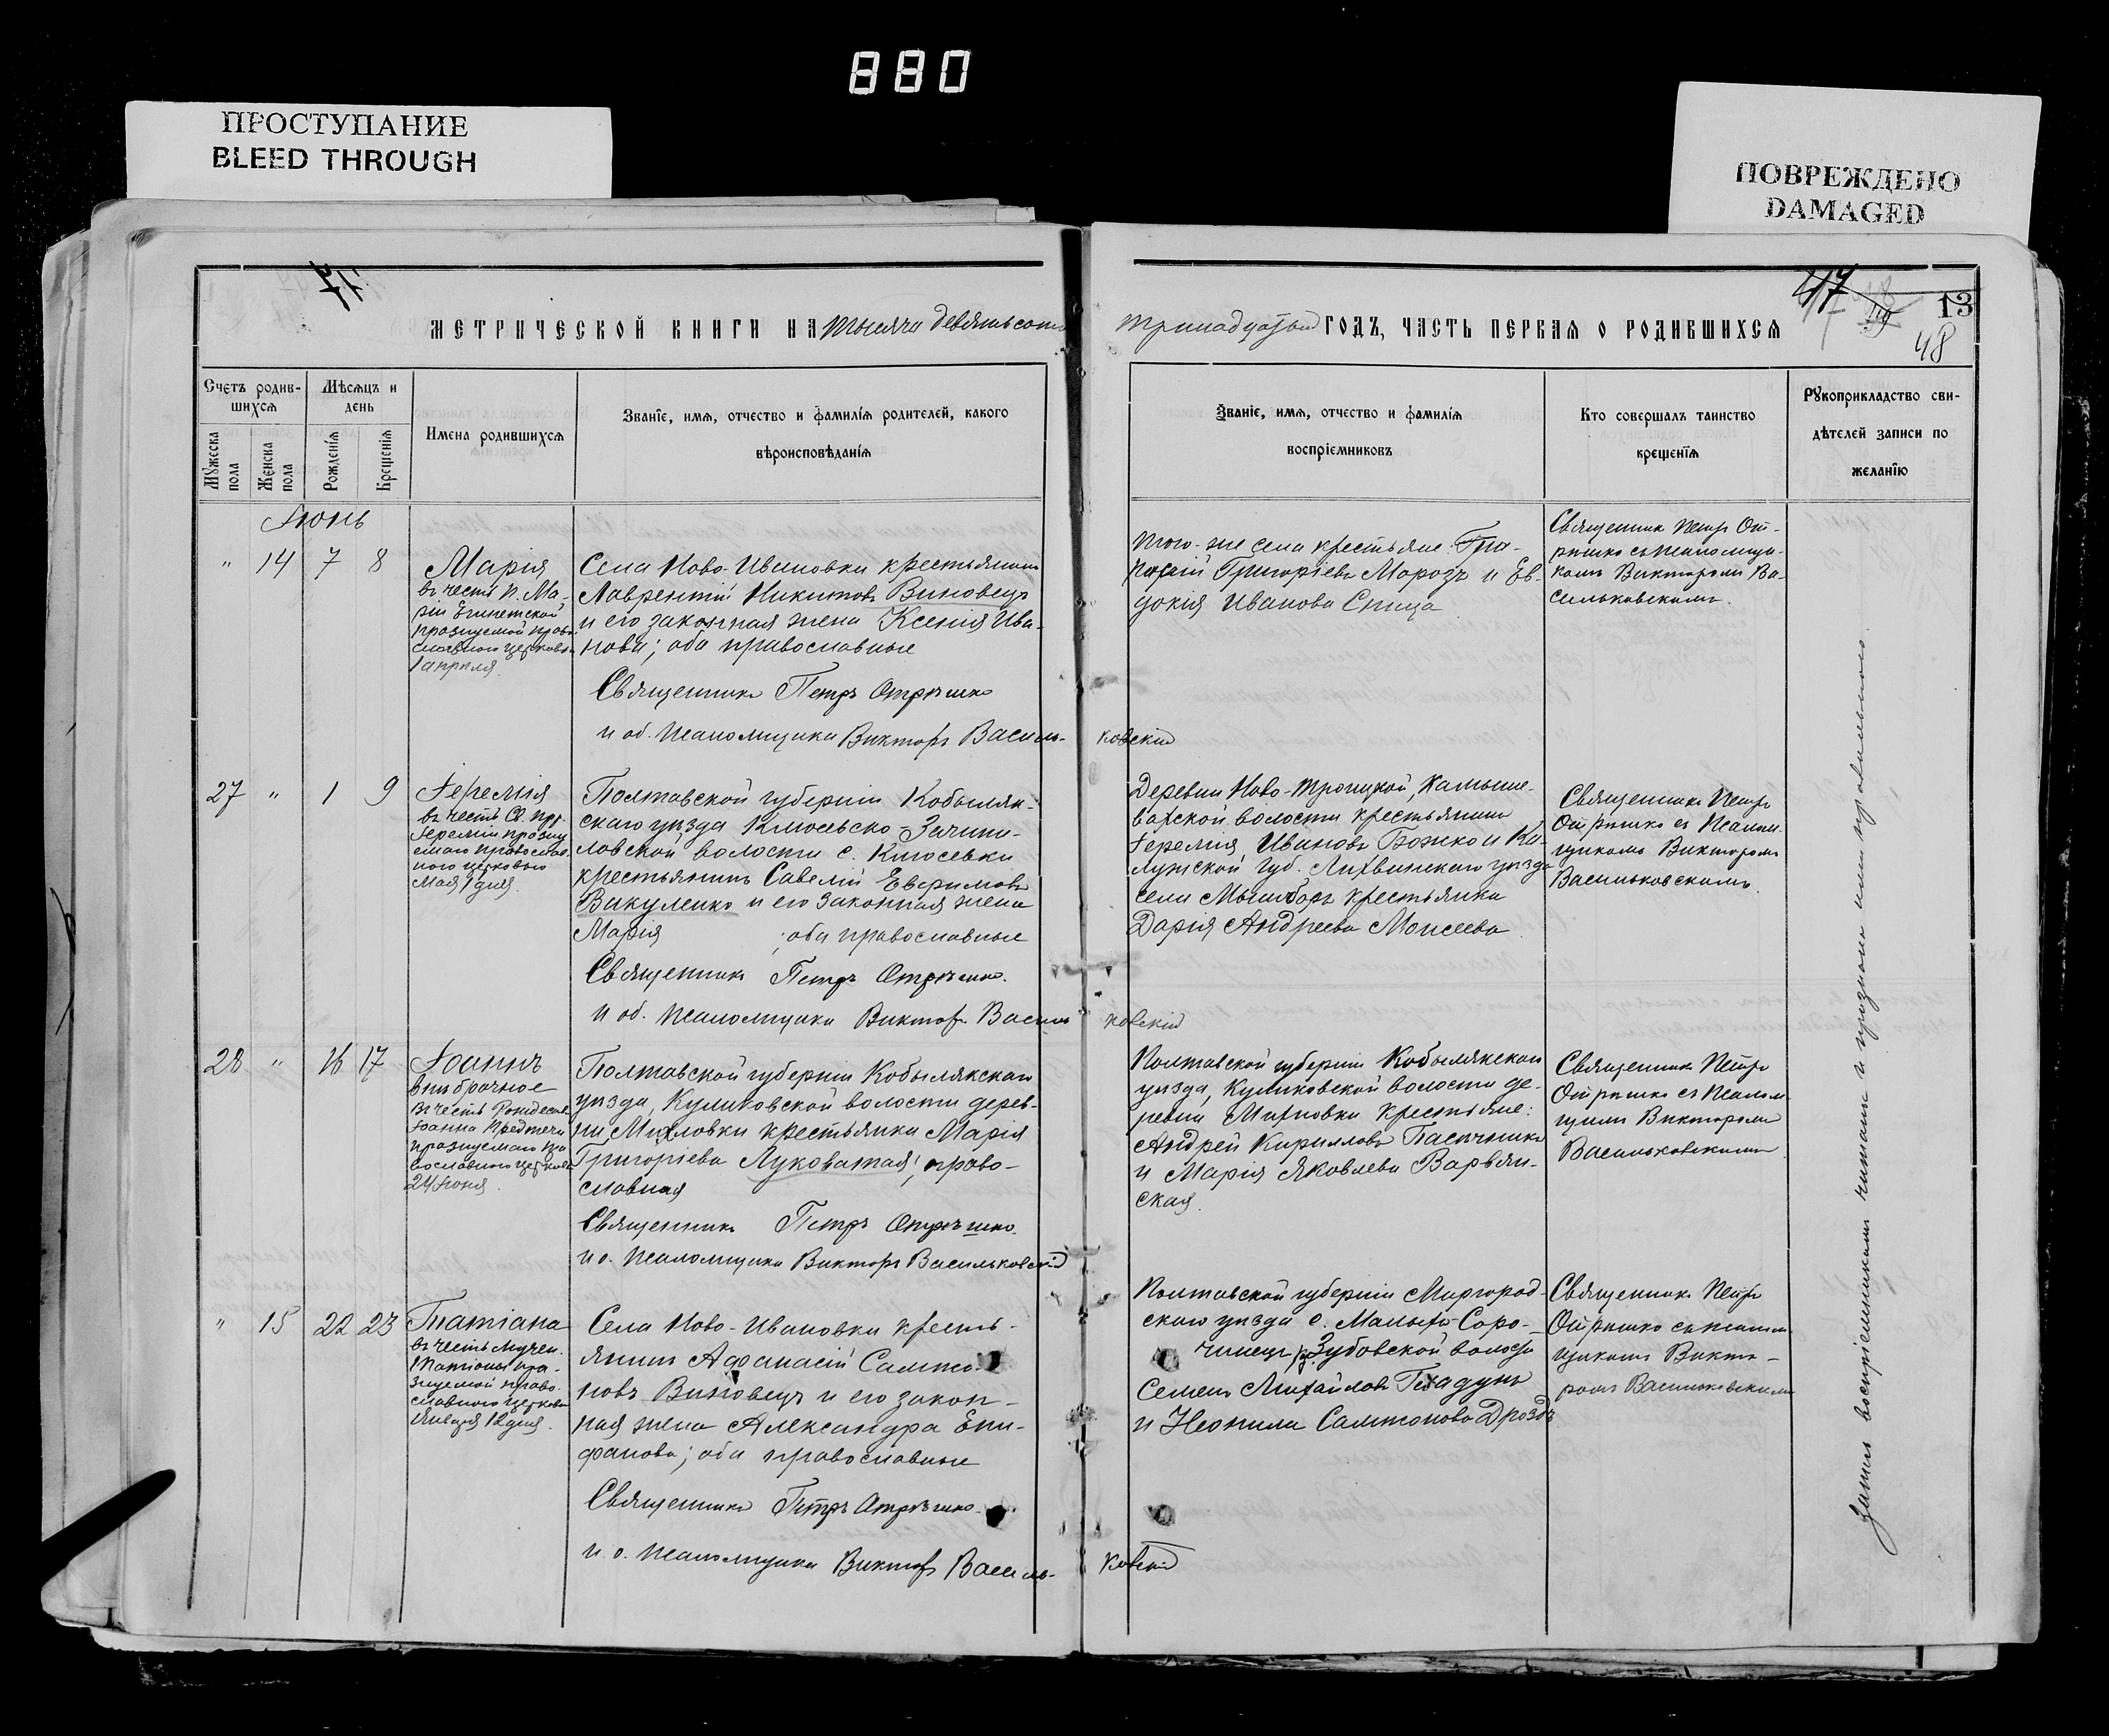 880
ПРОСТУПАНИЕ
BLEED THROUGH
ПОВРЕЖДЕНО
DAMAGED
47
13
48
МЕТРИЧЕСКОЙ КНИГИ НА тысяча девятьсотъ
тринадцатый ГОДЪ, ЧАСТЬ ПЕРВАЯ О РОДИВШИХСЯ
Счетъ родив-
шихся
Мѣсяцъ и
день
Мужеска
пола
Женска
пола
Рожденія
Крещенія
Имена родившихся
Званіе, имя, отчество и фамилія родителей, какого
вѣроисповѣданія
Званіе, имя, отчество и фамилія
воспріемниковъ
Кто совершалъ таинство
крещенія
Рукоприкладство сви-
дѣтелей записи по
желанію
Іюнь
" 14 7 8
Марія
въ честь п. Ма-
ріи Египетской
празнуемой право
славною церковію
1 апрѣля.
Села Ново-Ивановки крестьянинъ
Лаврентій Никитовъ Виновецъ
и его законная жена Ксенія Ива-
нова; оба православные
Священникъ Петръ Отрѣшко
и об. псаломщика Викторъ Василь-
ковскій
того-же села крестьяне:
Григоріевъ Морозъ и Ев-
докія Иванова Спица
Священникъ Петръ От-
рѣшко съ псаломщи-
комъ Викторомъ Ва-
сильковскимъ.
27 " 1 9
Іеремія
въ честь Св. пр.
Іереміи празну
емаго православ
ною церковью
Мая 1 дня.
Полтавской губерніи Кобыляк-
скаго уѣзда Клюсевско-Зачепи-
ловской волости с. Клюсевки
крестьянинъ Савелій Евфимовъ
Вакуленко и его законная жена
Марія ; оба православные
Священникъ Петръ Отрѣшко.
и об. псаломщика Викторъ Василь
ковскій
Деревни Ново-Троицкой, Камыше-
ватской волости крестьянинъ
Іеремія Ивановъ Божко и Ка-
лужской губ. Лихвинскаго уѣзда
села Мышборъ крестьянка
Дарія Андреева Моисеева
Священникъ Петръ
Отрѣшко съ Псалом-
щикомъ Викторомъ
Васильковскимъ.
28 " 16 17
Іоаннъ
внѣбрачное
въ честь Рождества
Іоанна Предтечи
празнуемаго пра
вославною церков
24 Іюня.
Полтавской губерніи Кобылякскаго
уѣзда, Куликовской волости дерев-
ни Михловки крестьянка Марія
Григоріева Луковатая; право-
славная
Священникъ Петръ Отрѣшко.
и о. псаломщика Викторъ Васильковскій
Полтавской губерніи Кобылякскаго
уѣзда, Куликовской волости де-
ревни крестьяне:
Андрей Кирилловъ Пасѣчникъ
и Марія Яковлева Варвян-
ская.
Священникъ Петръ
Отрѣшко съ Псалом
щикъ Викторомъ
Васильковскимъ
" 15 22 23
Татіана
въ честь мучен.
Татіаны пра-
знуемой право-
славною церковію
Января 12 дня.
Села Ново-Ивановки кресть-
янинъ Афанасій Сампсо-
новъ Виновецъ и его закон-
ная жена Александра Епи-
фанова; оба православные
Священникъ Петръ Отрѣшко.
и. о. псаломщика Викторъ Василь-
ковскій
Полтавской губерніи Миргород-
скаго уѣзда с. Малыхъ-Соро-
чинецъ Зубовской волости
Семенъ Михайловъ
и Неонила Сампсонова Дроздъ
Священникъ Петръ
Отрѣшко съ псалом
щикомъ Викто-
ромъ Васильковскимъ
Запись воспріемникамъ читана и признана ими правильною